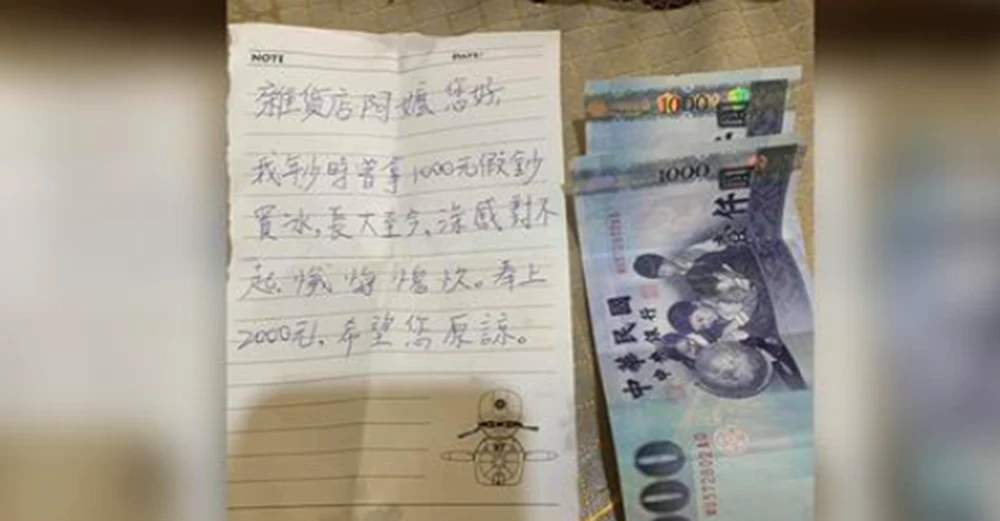 NOTE
DATE:
雜貨店阿嬤您好,
我年少時曾拿1000元假鈔
買冰,長大至今,深感對不
起,懺悔愧疚。奉上
2000元,希望您原諒。
1000
1000
壹仟圓
中華民國
中央銀行